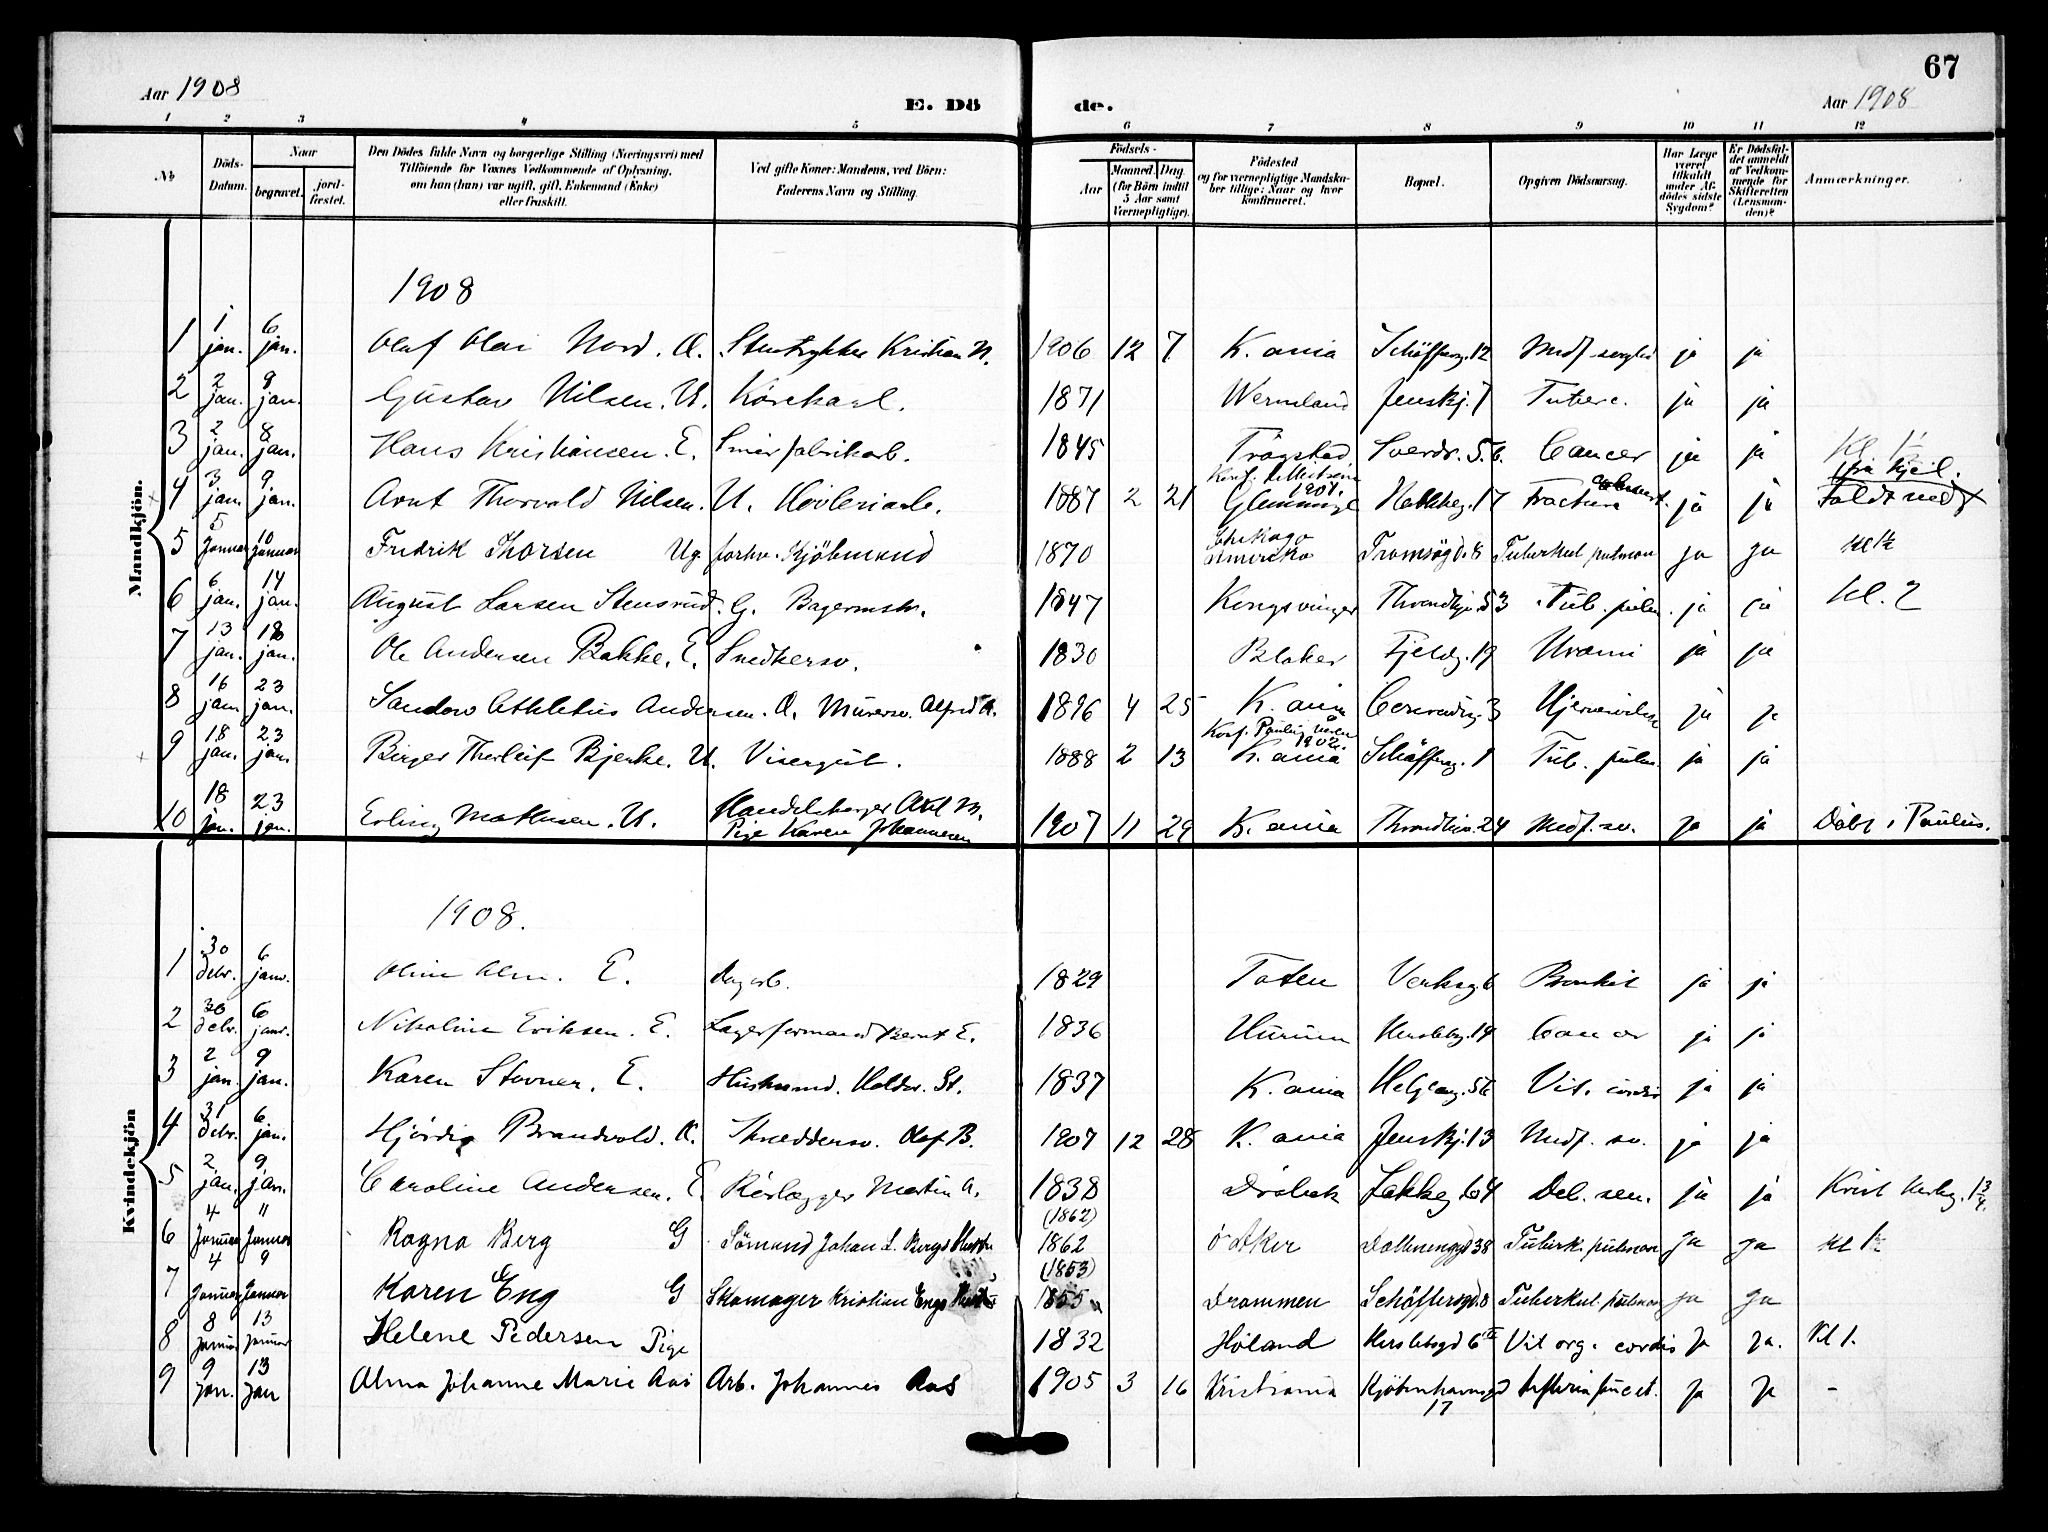 67
Aar 1908
E. Dö
de.
Aar 1908
1 2 3 4 5 6 7 8 9 10 11 12
№
Döds-Datum.
Naar
begravet.
jord-fæstet.
Den Dödes fulde Navn og borgerlige Stilling (Næringsvei) med
Tilföiende for Voxnes Vedkommende af Oplysning,
om han (hun) var ugift, gift, Enkemand (Enke)
eller fraskilt.
Ved gifte Koner: Mandens, ved Börn:
Faderens Navn og Stilling.
Födsels-
Aar
Maaned. Dag.
(for Börn indtil
5 Aar samt
Værnepligtige).
Födested
og for værnepligtige Mandska-
ber tillige: Naar og hvor
konfirmeret.
Bopæl.
Opgiven Dödsaarsag.
Har Læge
været
tilkaldt
under Af-
dödes sidste
Sygdom?
Er Dödsfal-
det anmeldt
af Vedkom-
mende for
Skifteretten
(Lensman-
den)?
Anmærkninger.
Mandkjön.
1908
1 1 jan. 6 jan. Olaf Olai Nord. Stentrykker Kristian N. 1906 12 7 K.ania Schäfferg. 12 ja ja
2 2 jan. 9 jan. Gustav Nilsen. U. Körekarl. 1871 Wermland Jenskj. 7 Tuberc. ja ja
3 2 jan. 8 jan. Hans Kristiansen. E. Smörfabrikarb. 1845 Trögstad Sverdr. Cancer ja ja Kl. 1½
4 3 jan. 9 jan. Arnt Thorvald Nilsen. U. Hövleriarb. 1887 2 21 Konf. 1901. Glemminge 17 Fractura ja ja
5 5 Januar 10 Januar Fredrik Thorsen Ug. forhv. Kjöbmand 1870 Chikago Amerika Tromsögd. 8 Tuberkul. pulmon ja ja Kl 1½
6 6 jan. 14 jan. August Larsen Stensrud. G. Bagermstr. 1847 Kongsvinger Throndhjv. 53 Tub. pulm. ja ja Kl. 2
7 13 jan. 18 jan. Ole Andersen Bakke. E. Snedkersv. 1830 Blaker Fjeldg. 19 Urämi ja ja
8 16 jan. 23 jan. Sandow Athletus Andersen. Murersv. Alfred A. 1896 4 25 K.ania 3 ja ja
9 18 jan. 23 jan. Birger Therleif Bjerke. U. Visergut. 1888 2 13 Konf. Paulus 1902. K.ania Schäfferg. 1 Tub. pulm. ja ja
10 18 jan. 23 jan. Erling Mathisen. U. Handelsborger Axel M. Pige Karen Johannesen 1907 11 29 K.ania Throndhjv. 24 Medf. sv. ja ja Döbt i Paulus.
Kvindekjön
1908.
1 30 debr. 6 janr. Oline Alm. E. Dagarb. 1829 Toten Verksg. 6 Bronkit ja ja
2 30 debr. 6 janr. Nikoline Eriksen. E. Lagerformand Bernt E. 1836 Hurum Herslebg. 14 Cancer ja ja
3 2 jan. 9 jan. Karen Stovner. E. Husmand. Halvor St. 1837 K.ania Helgesg. 56 Vit. cordis ja ja
4 31 debr. 6 jan. Hjördis Brandvold. Skræddersv. Olaf B. 1907 12 28 K.ania Jenskj. 13 Medf. sv. ja ja
5 2 jan. 9 jan. Caroline Andersen. E. Rörlægger Martin A. 1838 Dröbak Lakkeg 64 Deb. sen. ja ja 1¾
6 4 Januar 11 Januar Ragna Berg G Sömand Johan L. Bergs Hustru (1862) 1862 Ö. Aker Dælenenggd 38 Tuberk. pulmon ja ja Kl 1½
7 4 Januar 9 Januar Karen Eng G Skomager Kristian Engs Hustru (1853) 1855 Drammen Schäffersgd. 8 Tuberkul. pulmon ja ja
8 8 Januar 13 Januar Helene Pedersen Pige 1832 Höland Herslebsgd 6 Vit org. cordis ja ja. Kl 1.
9 9 jan. 13 jan Alma Johanne Marie Aas Arb. Johannes Aas 1905 3 16 Kristiania Kjöbenhavnsgd 17 ja ja -